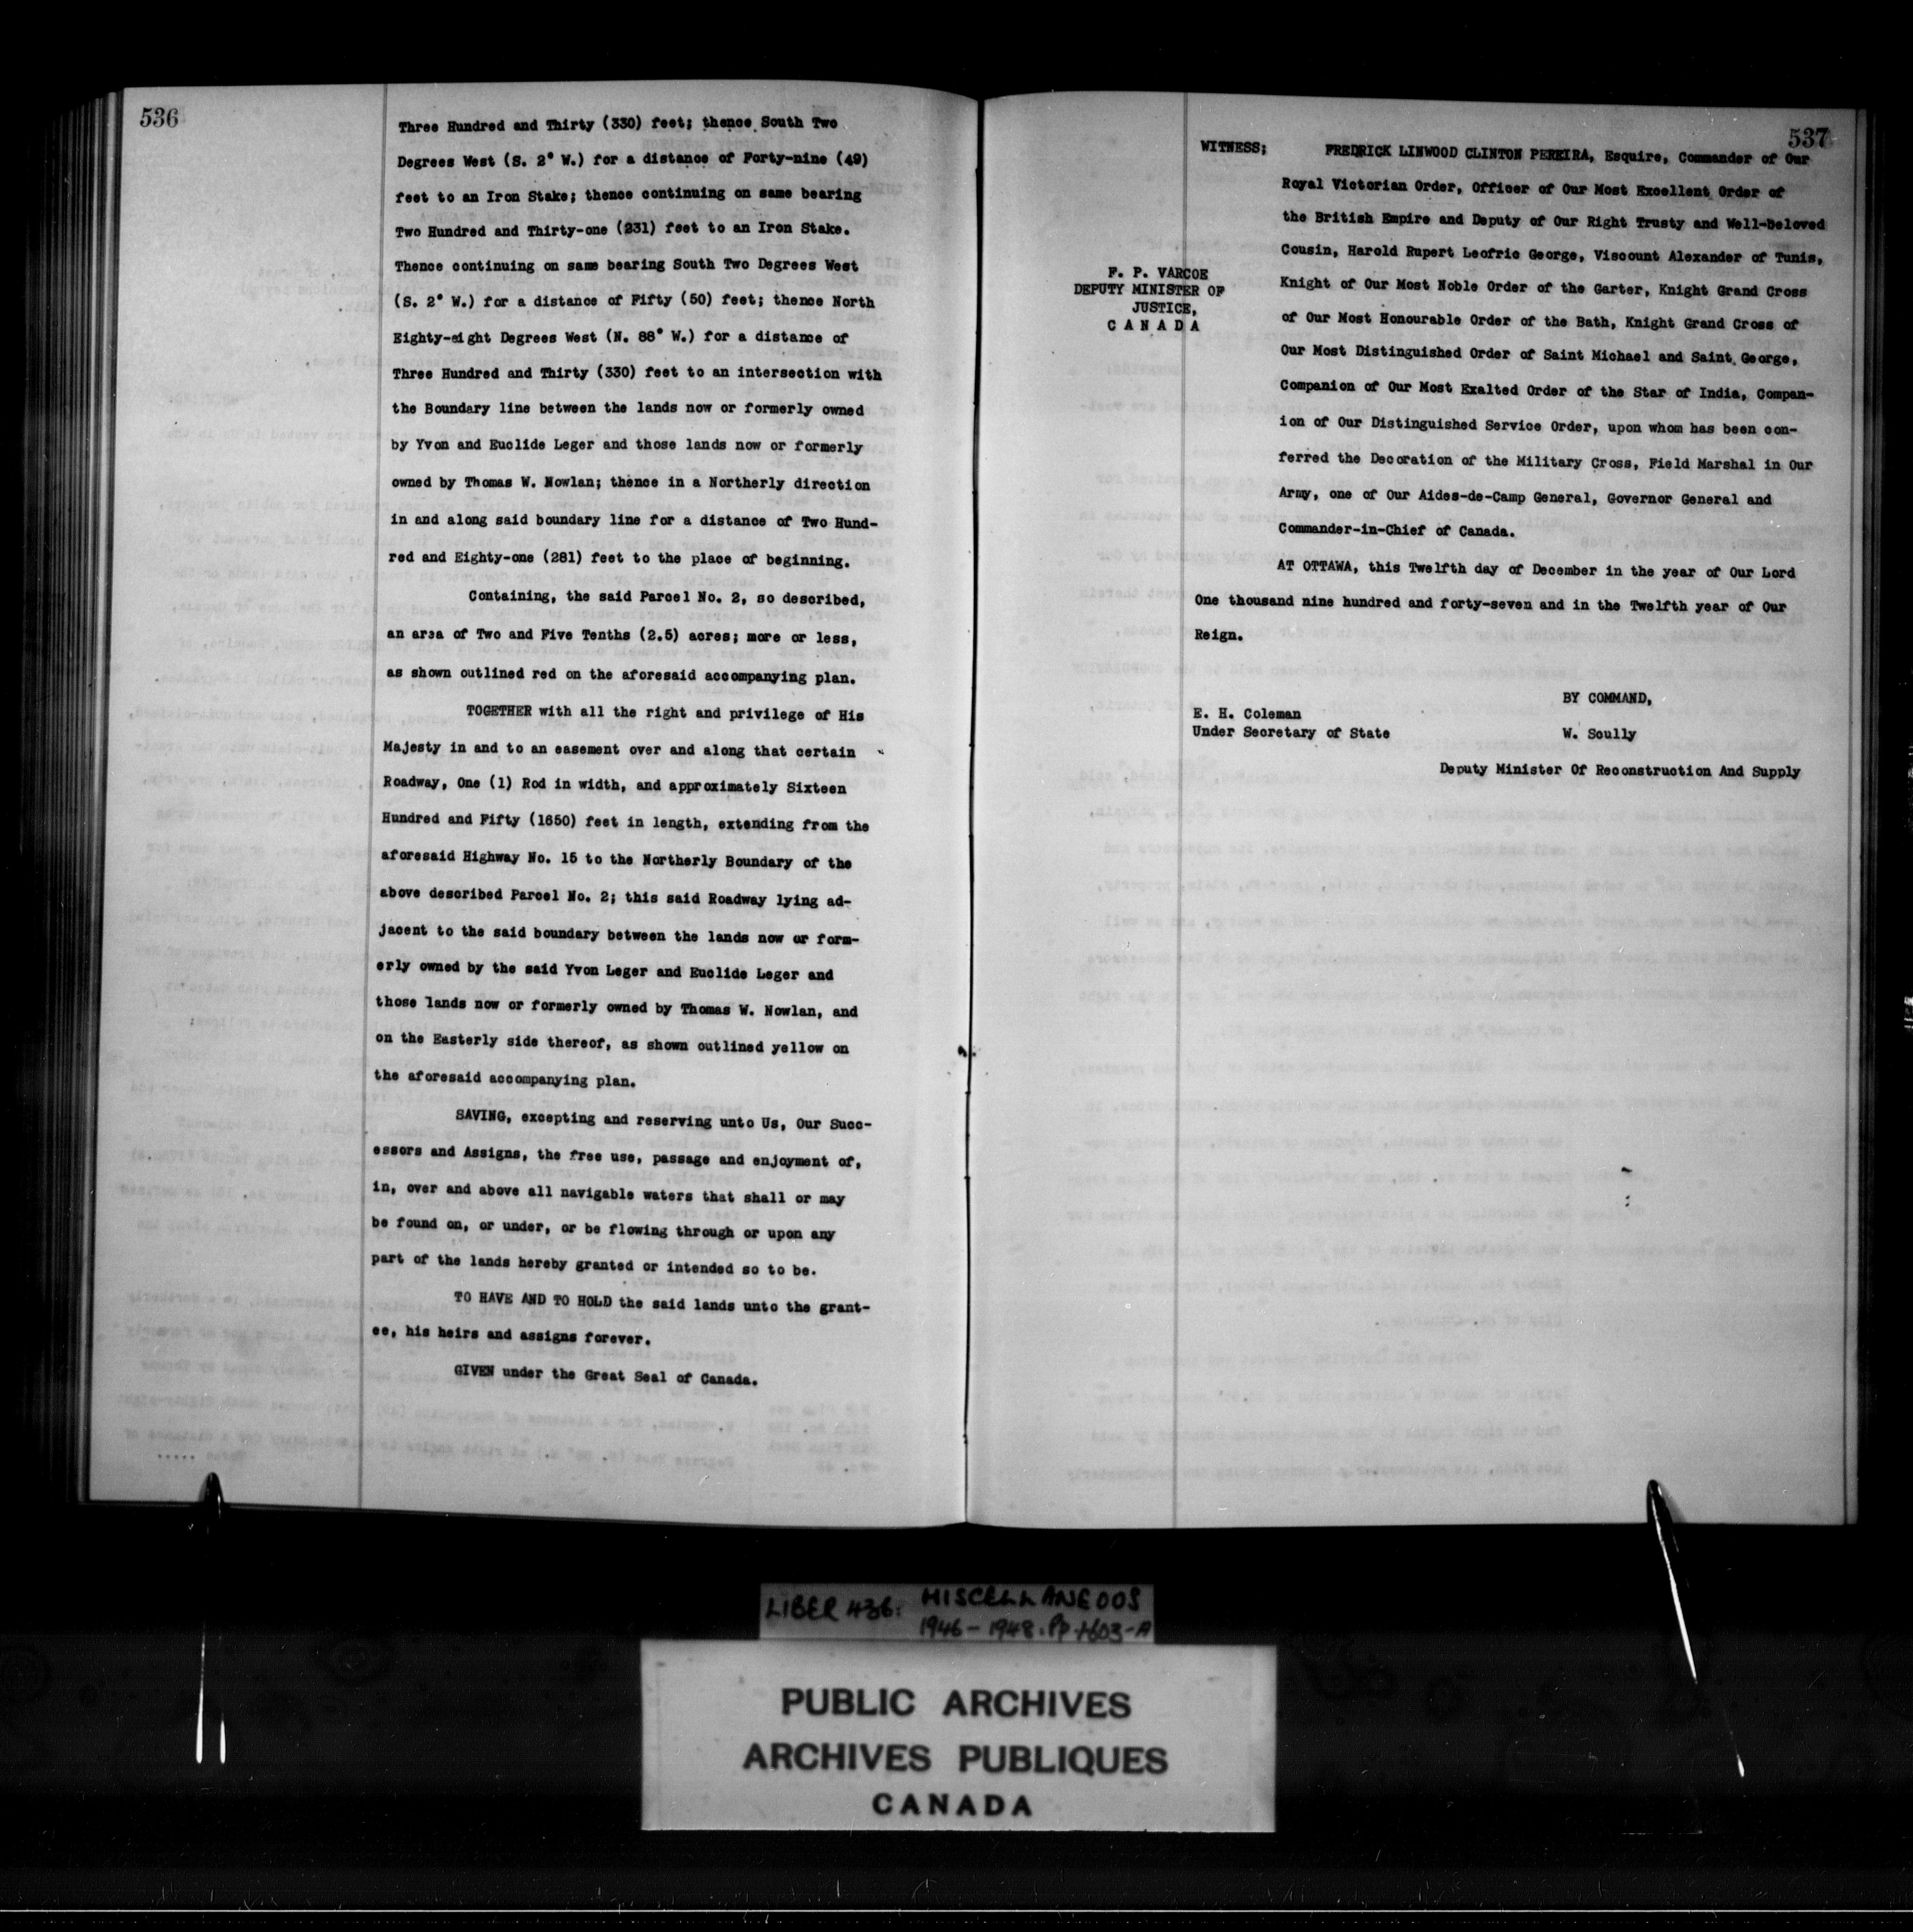 536
Three Hundred and Thirty (330) feet; thence South Two
Degrees West (S. 2° W.) for a distance of Forty-nine (49)
feet to an Iron Stake; thence continuing on same bearing
Two Hundred and Thirty-one (231) feet to an Iron Stake.
Thence continuing on same bearing South Two Degrees West
(S. 2° W.) for a distance of Fifty (50) feet; thence North
Eighty-eight Degrees West (N. 88° W.) for a distance of
Three Hundred and Thirty (330) feet to an intersection with
the Boundary line between the lands now or formerly owned
by Yvon and Euclide Leger and those lands now or formerly
owned by Thomas W. Nowlan; thence in a Northerly direction
in and along said boundary line for a distance of Two Hund-
red and Eighty-one (281) feet to the place of beginning.
Containing, the said Parcel No. 2, so described,
an area of Two and Five Tenths (2.5) acres; more or less,
as shown outlined red on the aforesaid accompanying plan.
TOGETHER with all the right and privilege of His
Majesty in and to an easement over and along that certain
Roadway, One (1) Rod in width, and approximately Sixteen
Hundred and Fifty (1650) feet in length, extending from the
aforesaid Highway No. 15 to the Northerly Boundary of the
above described Parcel No. 2; this said Roadway lying ad-
jacent to the said boundary between the lands now or form-
erly owned by the said Yvon Leger and Euclide Leger and
those lands now or formerly owned by Thomas W. Nowlan, and
on the Easterly side thereof, as shown outlined yellow on
the aforesaid accompanying plan.
SAVING, excepting and reserving unto Us, Our Succ-
essors and Assigns, the free use, passage and enjoyment of,
in, over and above all navigable waters that shall or may
be found on, or under, or be flowing through or upon any
part of the lands hereby granted or intended so to be.
TO HAVE AND TO HOLD the said lands unto the grant-
ee, his heirs and assigns forever.
GIVEN under the Great Seal of Canada.
537
WITNESS; FREDRICK LINWOOD CLINTON PEREIRA, Esquire, Commander of Our
Royal Victorian Order, Officer of Our Most Excellent Order of
the British Empire and Deputy of Our Right Trusty and Well-Beloved
Cousin, Harold Rupert Leofric George, Viscount Alexander of Tunis,
Knight of Our Most Noble Order of the Garter, Knight Grand Cross
of Our Most Honourable Order of the Bath, Knight Grand Cross of
Our Most Distinguished Order of Saint Michael and Saint George,
Companion of Our Most Exalted Order of the Star of India, Compan-
ion of Our Distinguished Service Order, upon whom has been con-
ferred the Decoration of the Military Cross, Field Marshal in Our
Army, one of Our Aides-de-Camp General, Governor General and
Commander-in-Chief of Canada.
F. P. VARCOE
DEPUTY MINISTER OF
JUSTICE,
C A N A D A
AT OTTAWA, this Twelfth day of December in the year of Our Lord
One thousand nine hundred and forty-seven and in the Twelfth year of Our
Reign.
BY COMMAND,
E. H. Coleman
Under Secretary of State
W. Scully
Deputy Minister Of Reconstruction And Supply
LIBER 436: MISCELLANEOUS
1946-1948. PP
PUBLIC ARCHIVES
ARCHIVES PUBLIQUES
CANADA